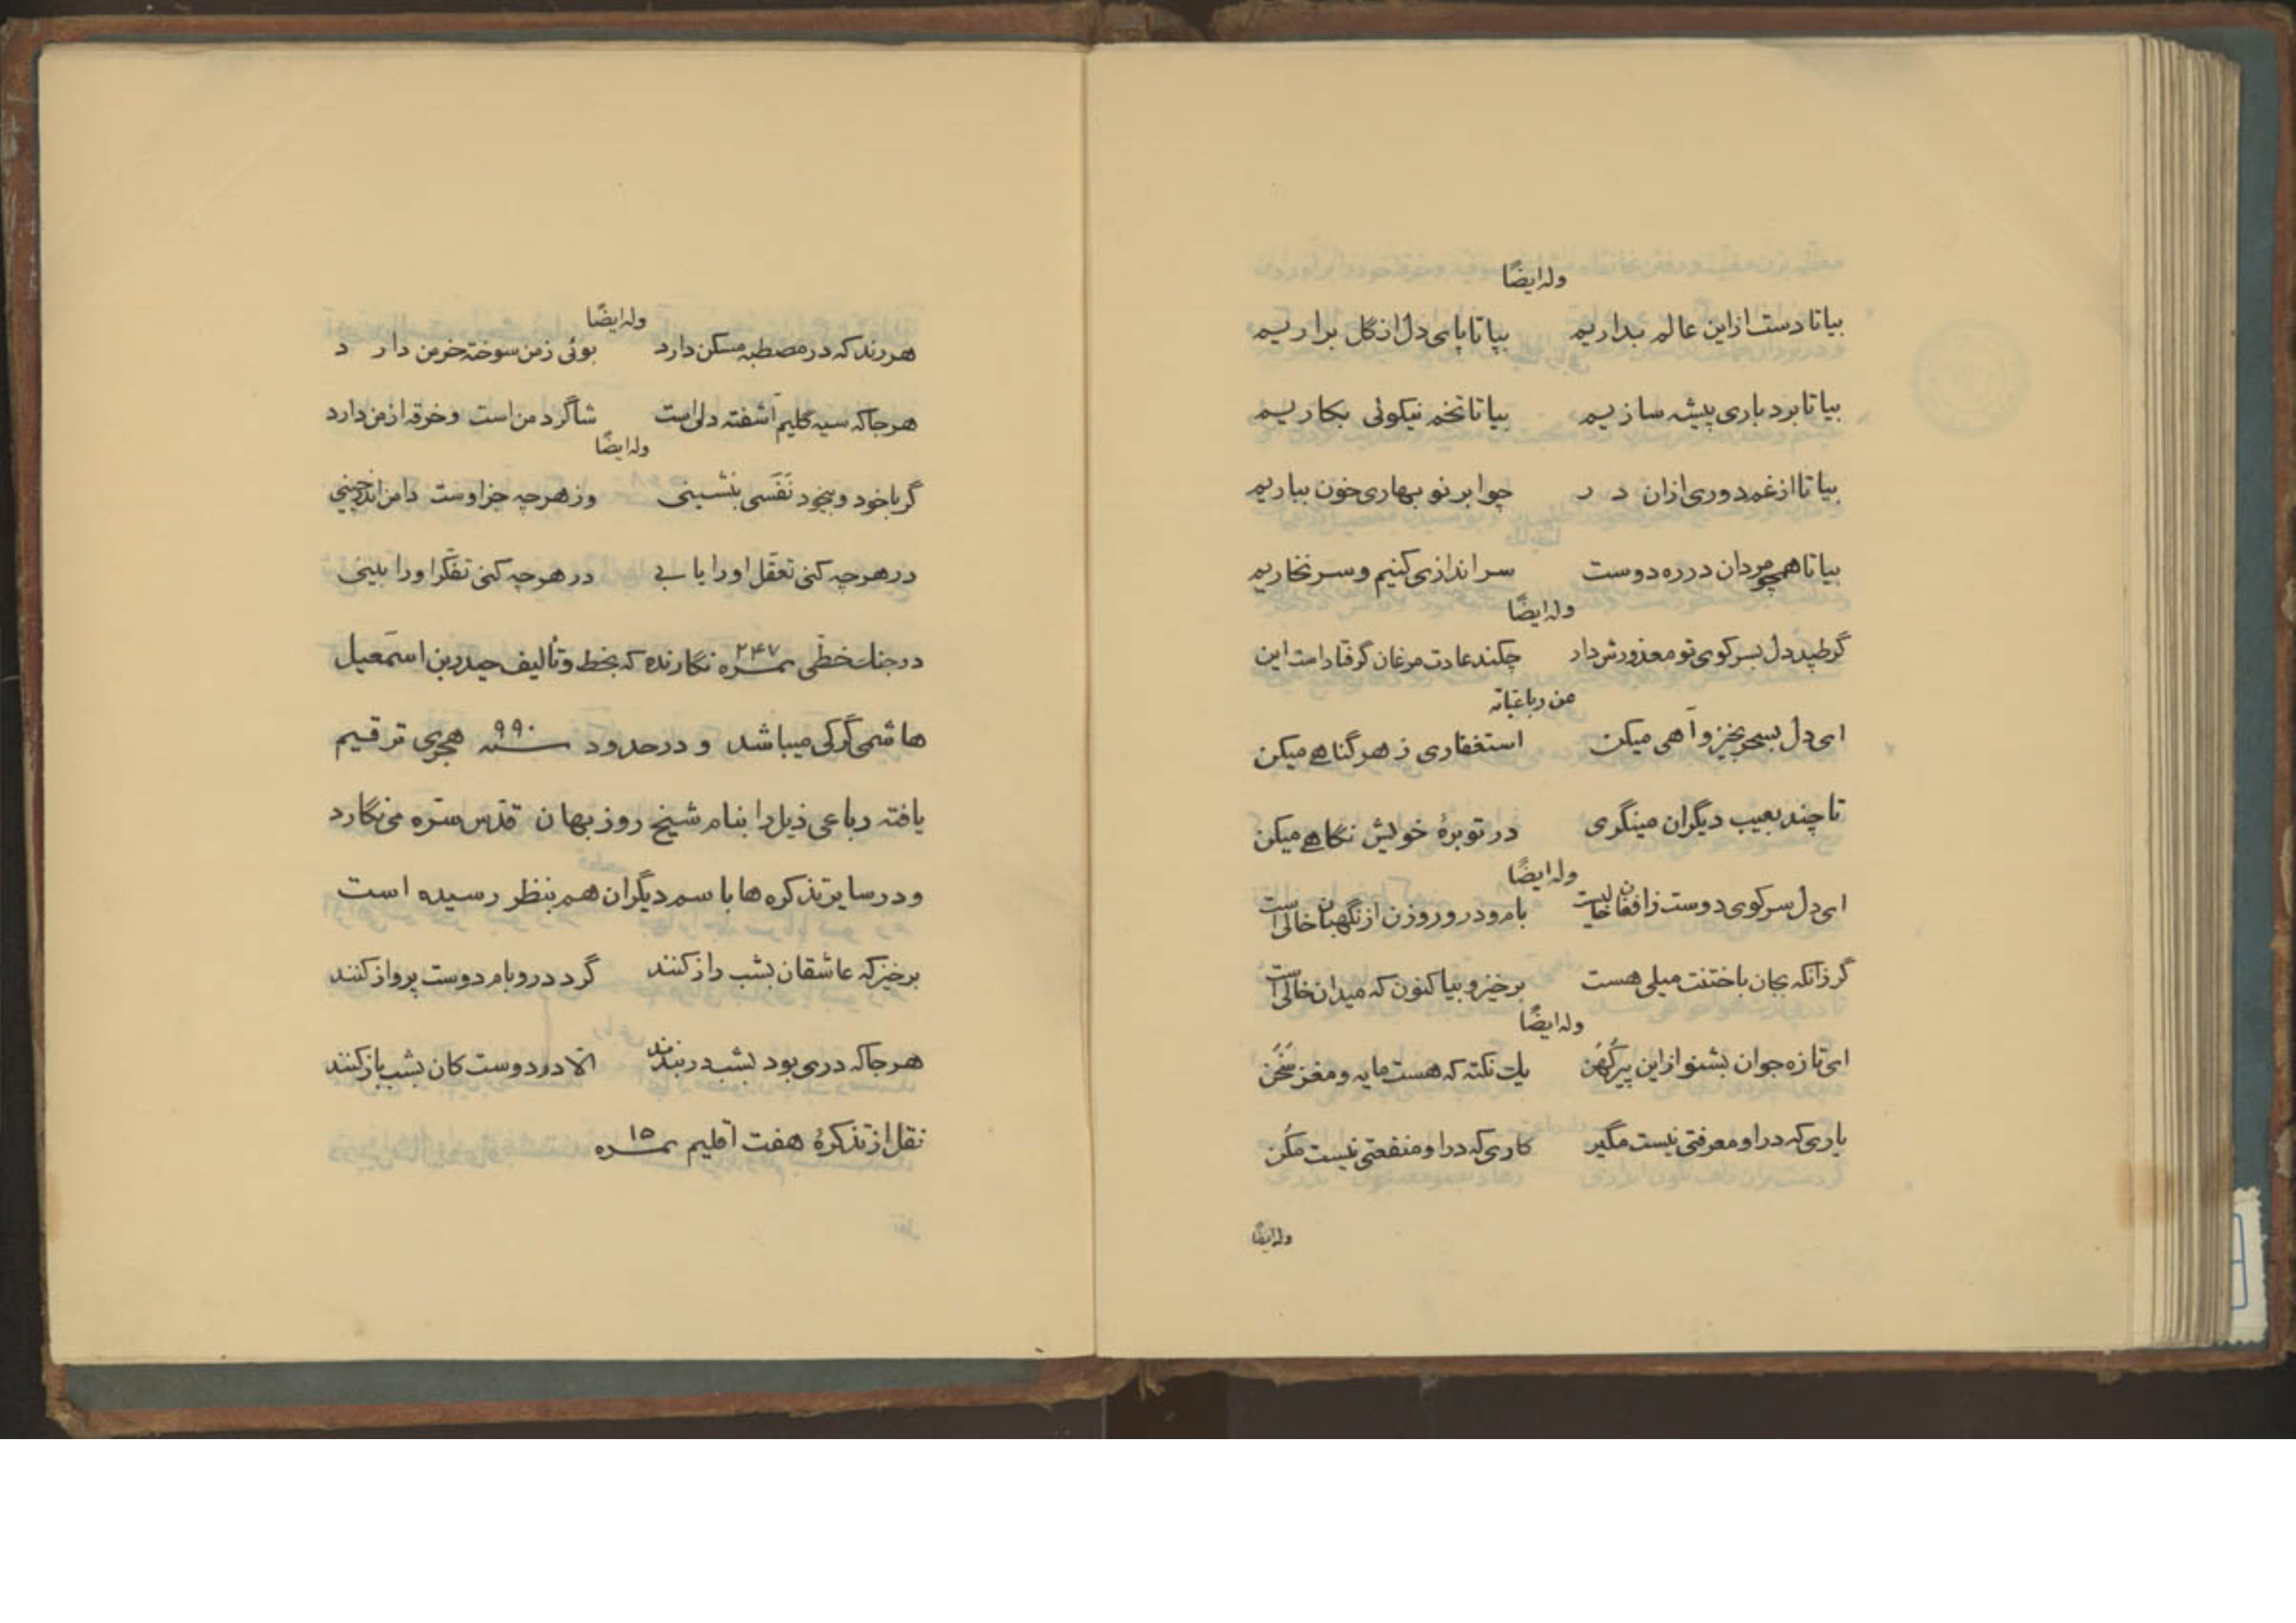 وله ایضًا
بیا تا دست ازاین عالم بداریم بیا تا پای دل از گل براریم
بیا تا بردباری پیشه سازیم بیا تا تخم نیکوئی بکاریم
بیا تا از غم دوری ازان در چو ابر نو بهاری خون بباریم
بیا تا همچو مردان در ره دوست سراندازی کنیم و سر نخاریم
وله ایضًا
گر طپد دل بسر کوی تو معذورش دار چکند عادت مرغان گرفتار است این
من رباعیاته
ای دل بسحر بخیز و آهی میکن استغفاری ز هر گناهی میکن
تا چند بعیب دیگران مینگری در توبرهٔ خویش نگاهی میکن
وله ایضًا
ای دل سر کوی دوست زافغان خالیست بام و در و روزن از نگهبان خالی است
گر زانکه بجان باختنت میلی هست برخیز و بیا کنون که میدان خالی است
وله ایضًا
ای تازه جوان بشنو ازاین پیر کُهَن یك نکته که هست مایه و مغز سَخُن
یاری که در او معرفتی نیست مگیر کاری که در او منفعتی نیست مکُن
وله ایضًا
وله ایضًا
هر رند که در مصطبه مسکن دارد بوئی ز من سوخته خرمن دارد
هر جا که سیه گلیم آشفته دلی است شاگرد من است و خرقه از من دارد
وله ایضًا
گر با خود و بیخود نَفَسی بنشینی وز هرچه جز اوست دامن اندر چینی
در هرچه کنی تعقّل او را یابی در هرچه کنی تفکّر او را بینی
در جنك خطّی نمره ۲۴۷ نگارنده که بخط و تالیف حیدر بن اسمعیل
هاشمی گرکی میباشد و در حدود سنه ۹۹۰ هجری ترقیم
یافته رباعی ذیل را بنام شیخ روزبهان قدّس سرّه می نگارد
و در سایر تذکره ها باسم دیگران هم بنظر رسیده است
برخیز که عاشقان بشب راز کنند گرد در و بام دوست پرواز کنند
هر جا که دری بود بشب در بندند الّا در دوست کان بشب باز کنند
نقل از تذکرهٔ هفت اقلیم نمره ۱۵